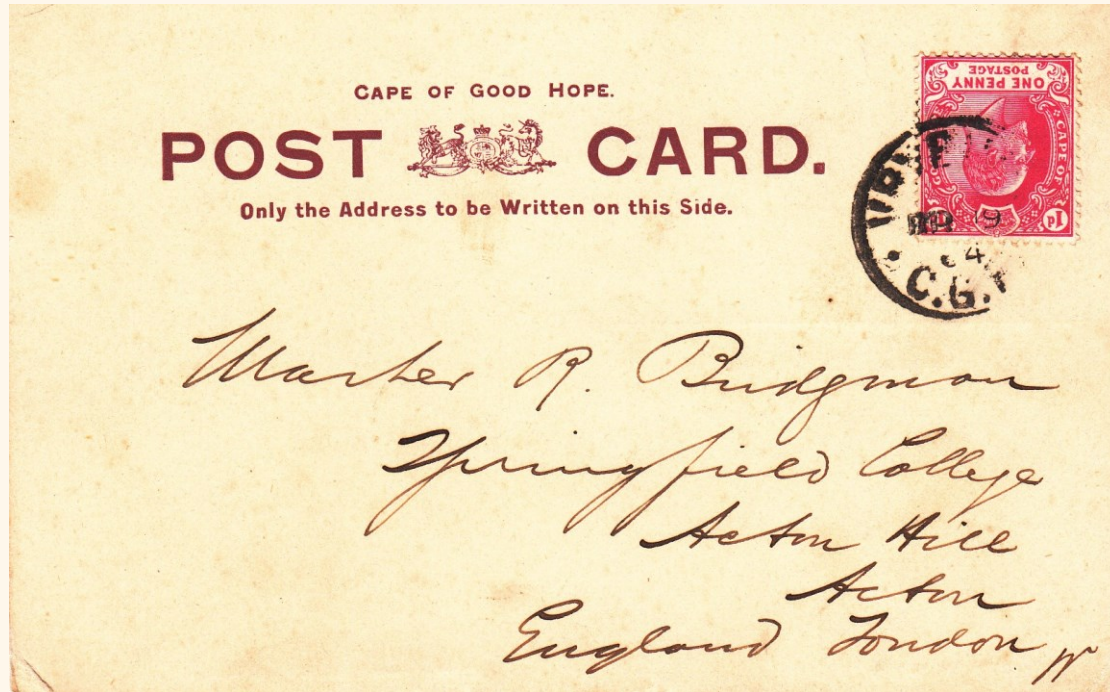 CAPE OF GOOD HOPE.
POST CARD.
Only the Address to be Written on this Side.
ONE PENNY
POSTAGE
CAPE OF
1d
C.G.
Master R. Bridgman
Springfield College
Acton Hill
Acton
England London W